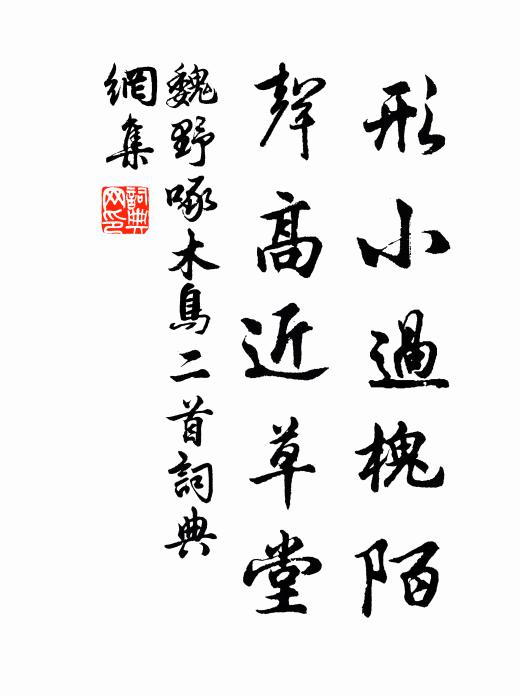 形小過槐陌
聲高近草堂
魏野啄木鳥二首詞典
網集
詞典網印